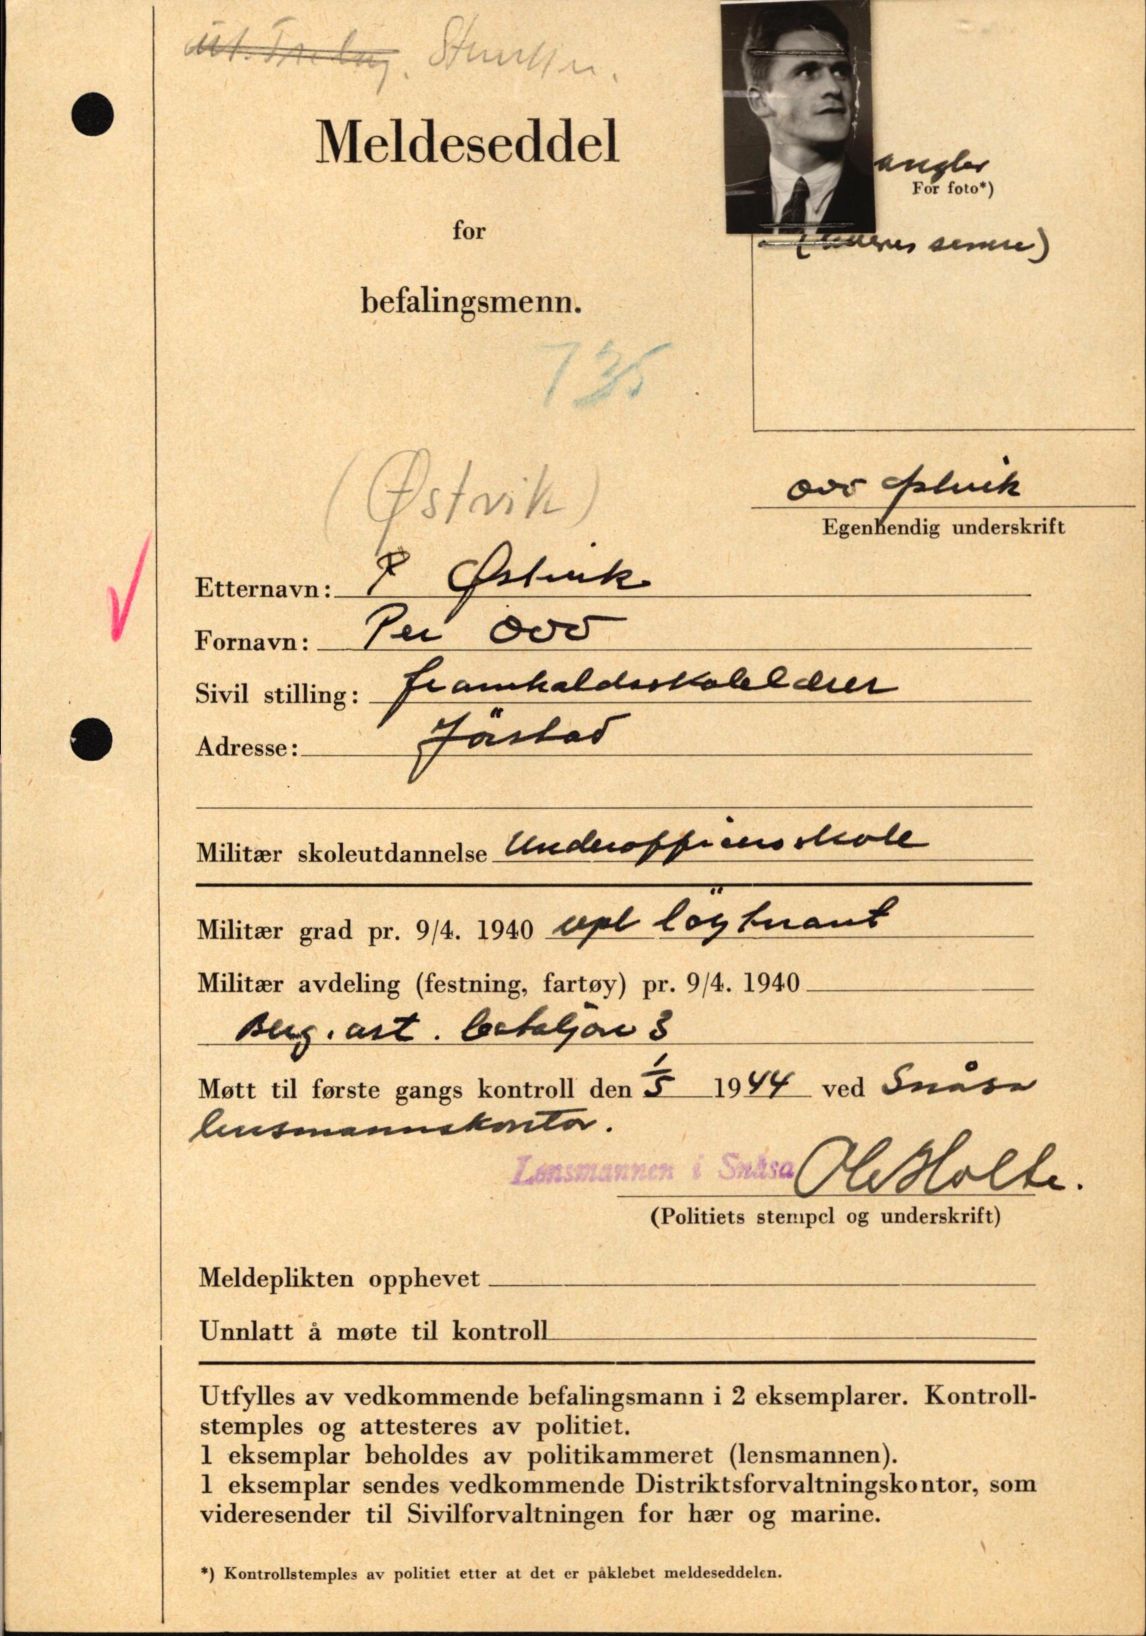 Meldeseddel
for
befalingsmenn.
mangler
For foto*)
735
(Østvik)
Odd Østvik
Egenhendig underskrift
Etternavn: Østvik
Fornavn: Per Odd
Sivil stilling: framhaldsskolelærer
Adresse: Jörstad
Militær skoleutdannelse Underoffisersskole
Militær grad pr. 9/4. 1940 vpl löytnant
Militær avdeling (festning, fartøy) pr. 9/4. 1940
Berg. art. bataljon 3
Møtt til første gangs kontroll den 1/5 1944 ved Snåsa
lensmannskontor.
Lensmannen i Snåsa Ole Holte.
(Politiets stempel og underskrift)
Meldeplikten opphevet
Unnlatt å møte til kontroll
Utfylles av vedkommende befalingsmann i 2 eksemplarer. Kontroll-
stemples og attesteres av politiet.
1 eksemplar beholdes av politikammeret (lensmannen).
1 eksemplar sendes vedkommende Distriktsforvaltningskontor, som
videresender til Sivilforvaltningen for hær og marine.
*) Kontrollstemples av politiet etter at det er påklebet meldeseddelen.